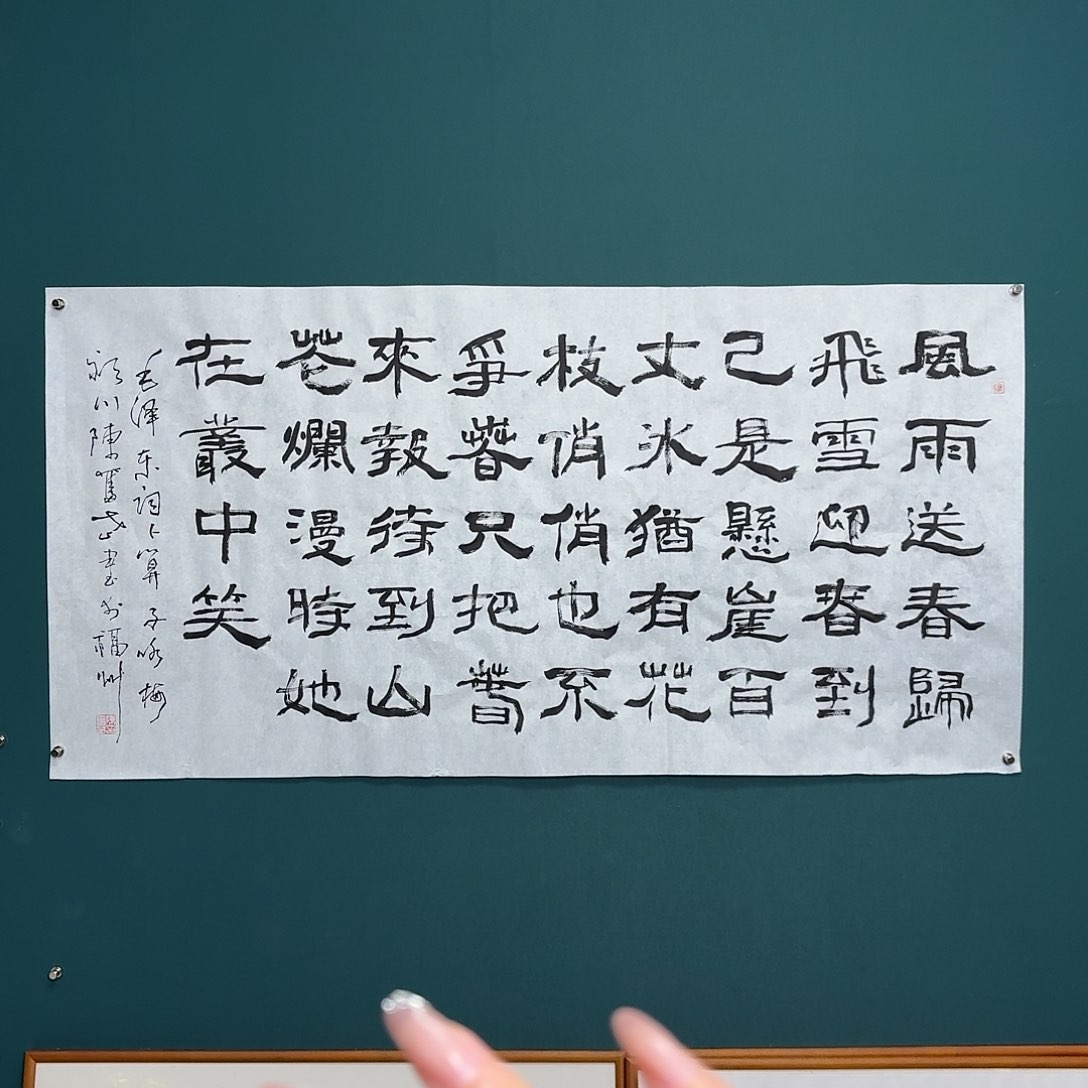 風雨送春歸
飛雪迎春到
已是懸崖百
丈冰猶有花
枝俏俏也不
爭春只把春
來報待到山
花爛漫時她
在叢中笑
毛泽东词卜算子咏梅
颍川陳奮武書於福州